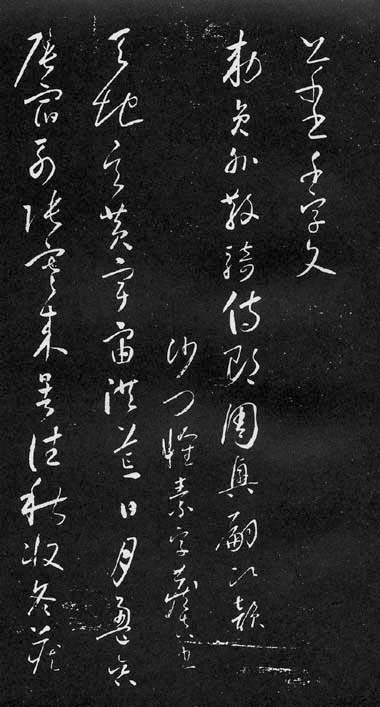 千字文
敕員外散騎侍郎周興嗣次韻
沙門懷素字藏真書
天地玄黃宇宙洪荒日月盈昃
辰宿列張寒來暑往秋收冬藏